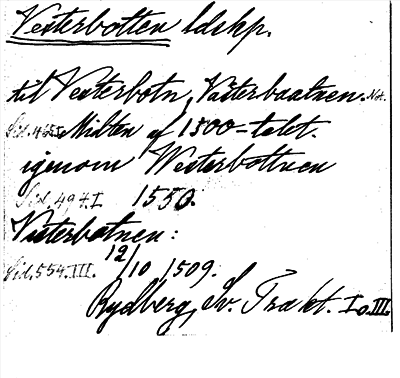 Vesterbotten ldskp.
til Vesterbotn, Vasterbaatnen. Not.
Sid. 465 I. Midten af 1500-talet.
igenom Westerbottnen
Sid. 494. I 1550.
Vesterbotnen:
Sid. 554. III. 12/10 1509.
Rydberg, Sv. Trakt. I o. III.